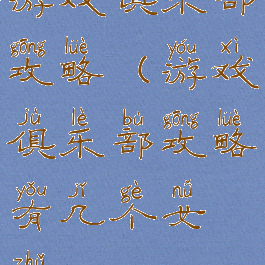 游戏俱乐部
gōng lüè yóu xì
攻略(游戏
jù lè bù gōng lüè
俱乐部攻略
yǒu jǐ gè nǚ
有几个女
zhǔ